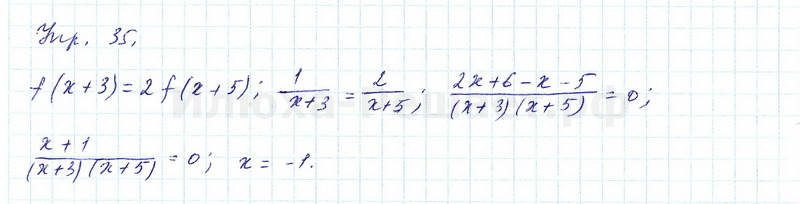 Упр. 35.
f(x+3)=2f(x+5); 1/(x+3) = 2/(x+5); (2x+6-x-5)/((x+3)(x+5)) = 0;
(x+1)/((x+3)(x+5)) = 0; x = -1.